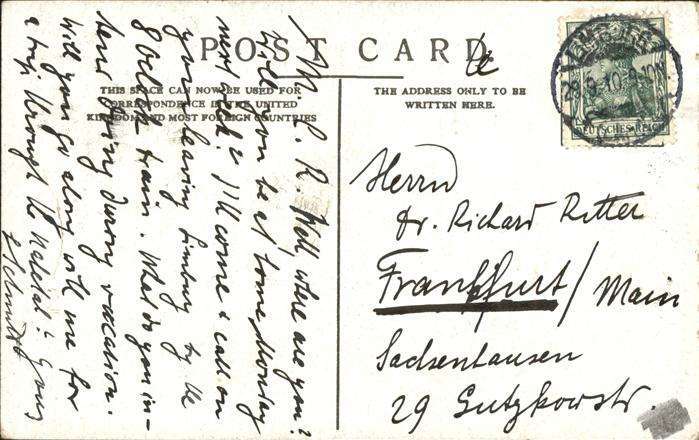 POST CARD.
THIS SPACE CAN NOW BE USED FOR
CORRESPONDENCE IN THE UNITED
KINGDOM AND MOST FOREIGN COUNTRIES
THE ADDRESS ONLY TO BE
WRITTEN HERE.
M. L. R. Well, where are you?
Will soon be at home, Monday
next week? I'll come & call on
you leaving Limburg by the
8 o'clock train. What do you in-
tend doing during vacation.
Will you go along with me for
a trip through the Nahetal? Yours
Schmidt
DEUTSCHES REICH
28.9.10.
Herrn
Dr. Richard Ritter
Frankfurt / Main
Sachsenhausen
29 Gutzkowstr.